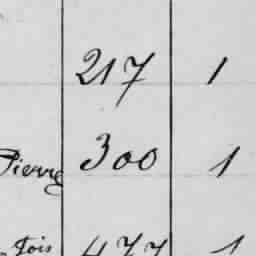 217 1
Pierre 300 1
fois 477 1